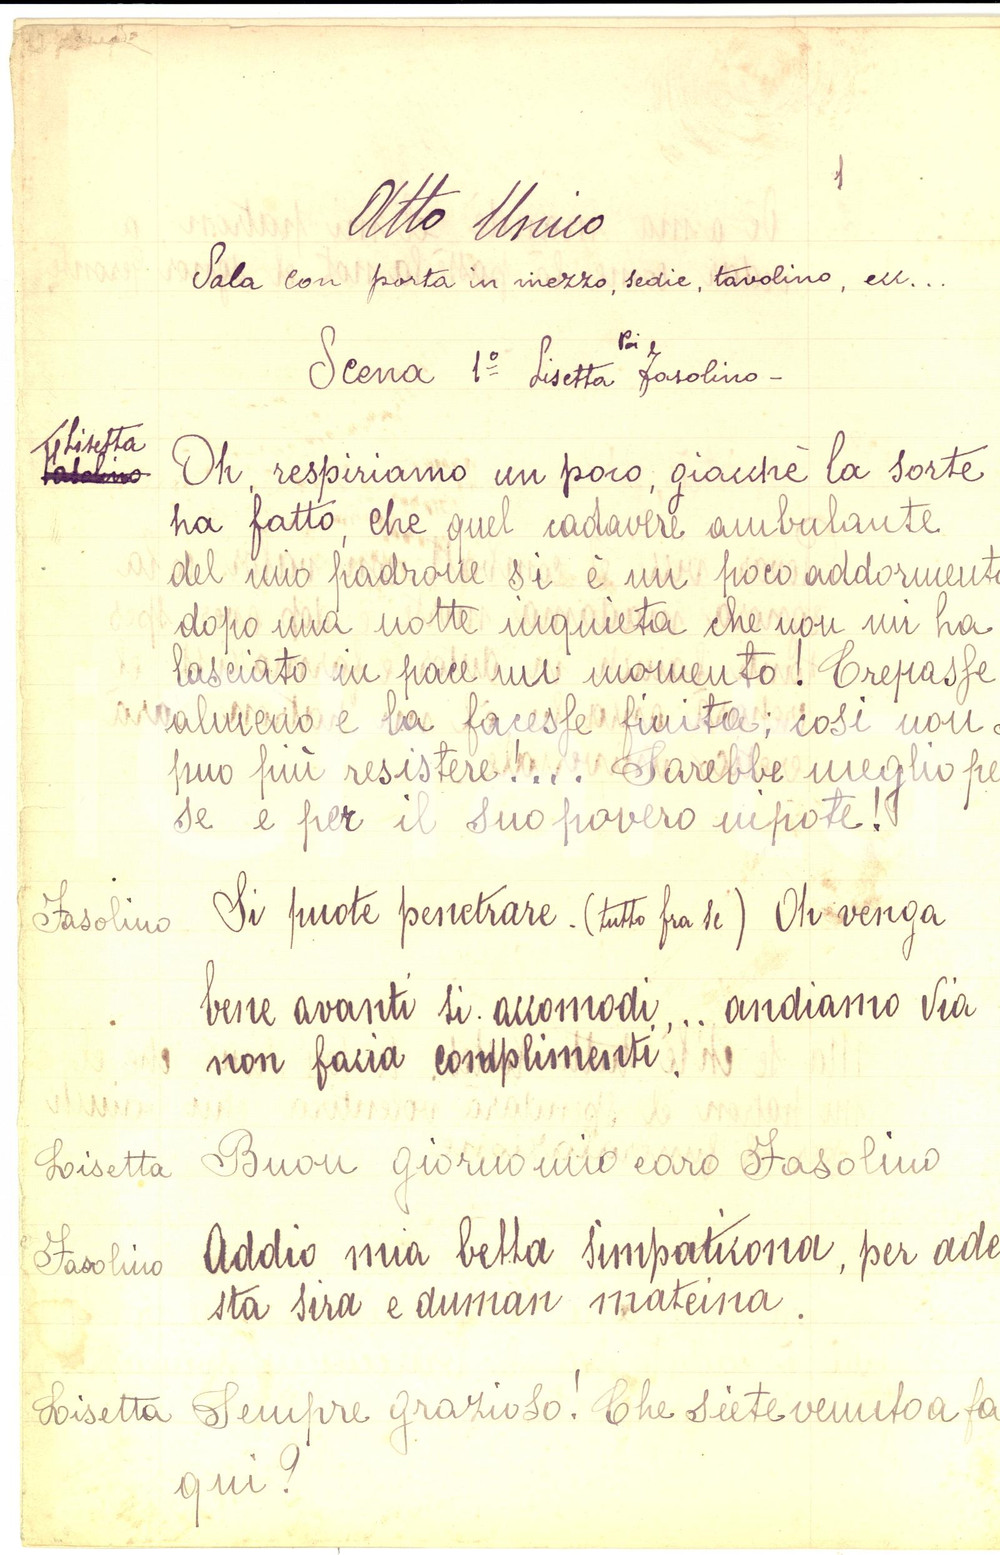 1
Atto Unico
Sala con porta in mezzo, sedie, tavolino, ecc...
Scena 1º Lisetta Poi e Fasolino -
Lisetta
Fasolino Oh, respiriamo un poco, giacchè la sorte
ha fatto, che quel cadavere ambulante
del mio padrone si è un poco addorment
dopo una notte inquieta che non mi ha
lasciato in pace un momento! Crepasse
almeno e la facesse finita; cosi non s
puo più resistere!... Sarebbe meglio pe
se e per il suo povero nipote!
Fasolino Si puote penetrare. (tutto fra se) Oh venga
bene avanti si accomodi,.. andiamo via
non facia complimenti.
Lisetta Buon giorno mio caro Fasolino
Fasolino Addio mia bella simpaticona, per ade
sta sira e duman mateina.
Lisetta Sempre grazioso! Che siete venuto a fa
qui?